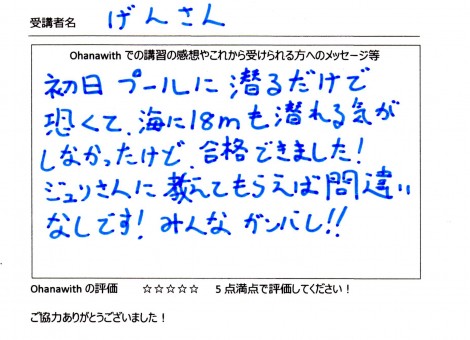 受講者名 げんさん
Ohanawith での講習の感想やこれから受けられる方へのメッセージ等
初日 プールに潜るだけで
恐くて、海に18mも潜れる気が
しなかったけど、合格できました!
ジュリさんに教えてもらえば間違い
なしです! みんな ガンバレ!!
Ohanawith の評価 ☆☆☆☆☆ 5 点満点で評価してください！
ご協力ありがとうございました！